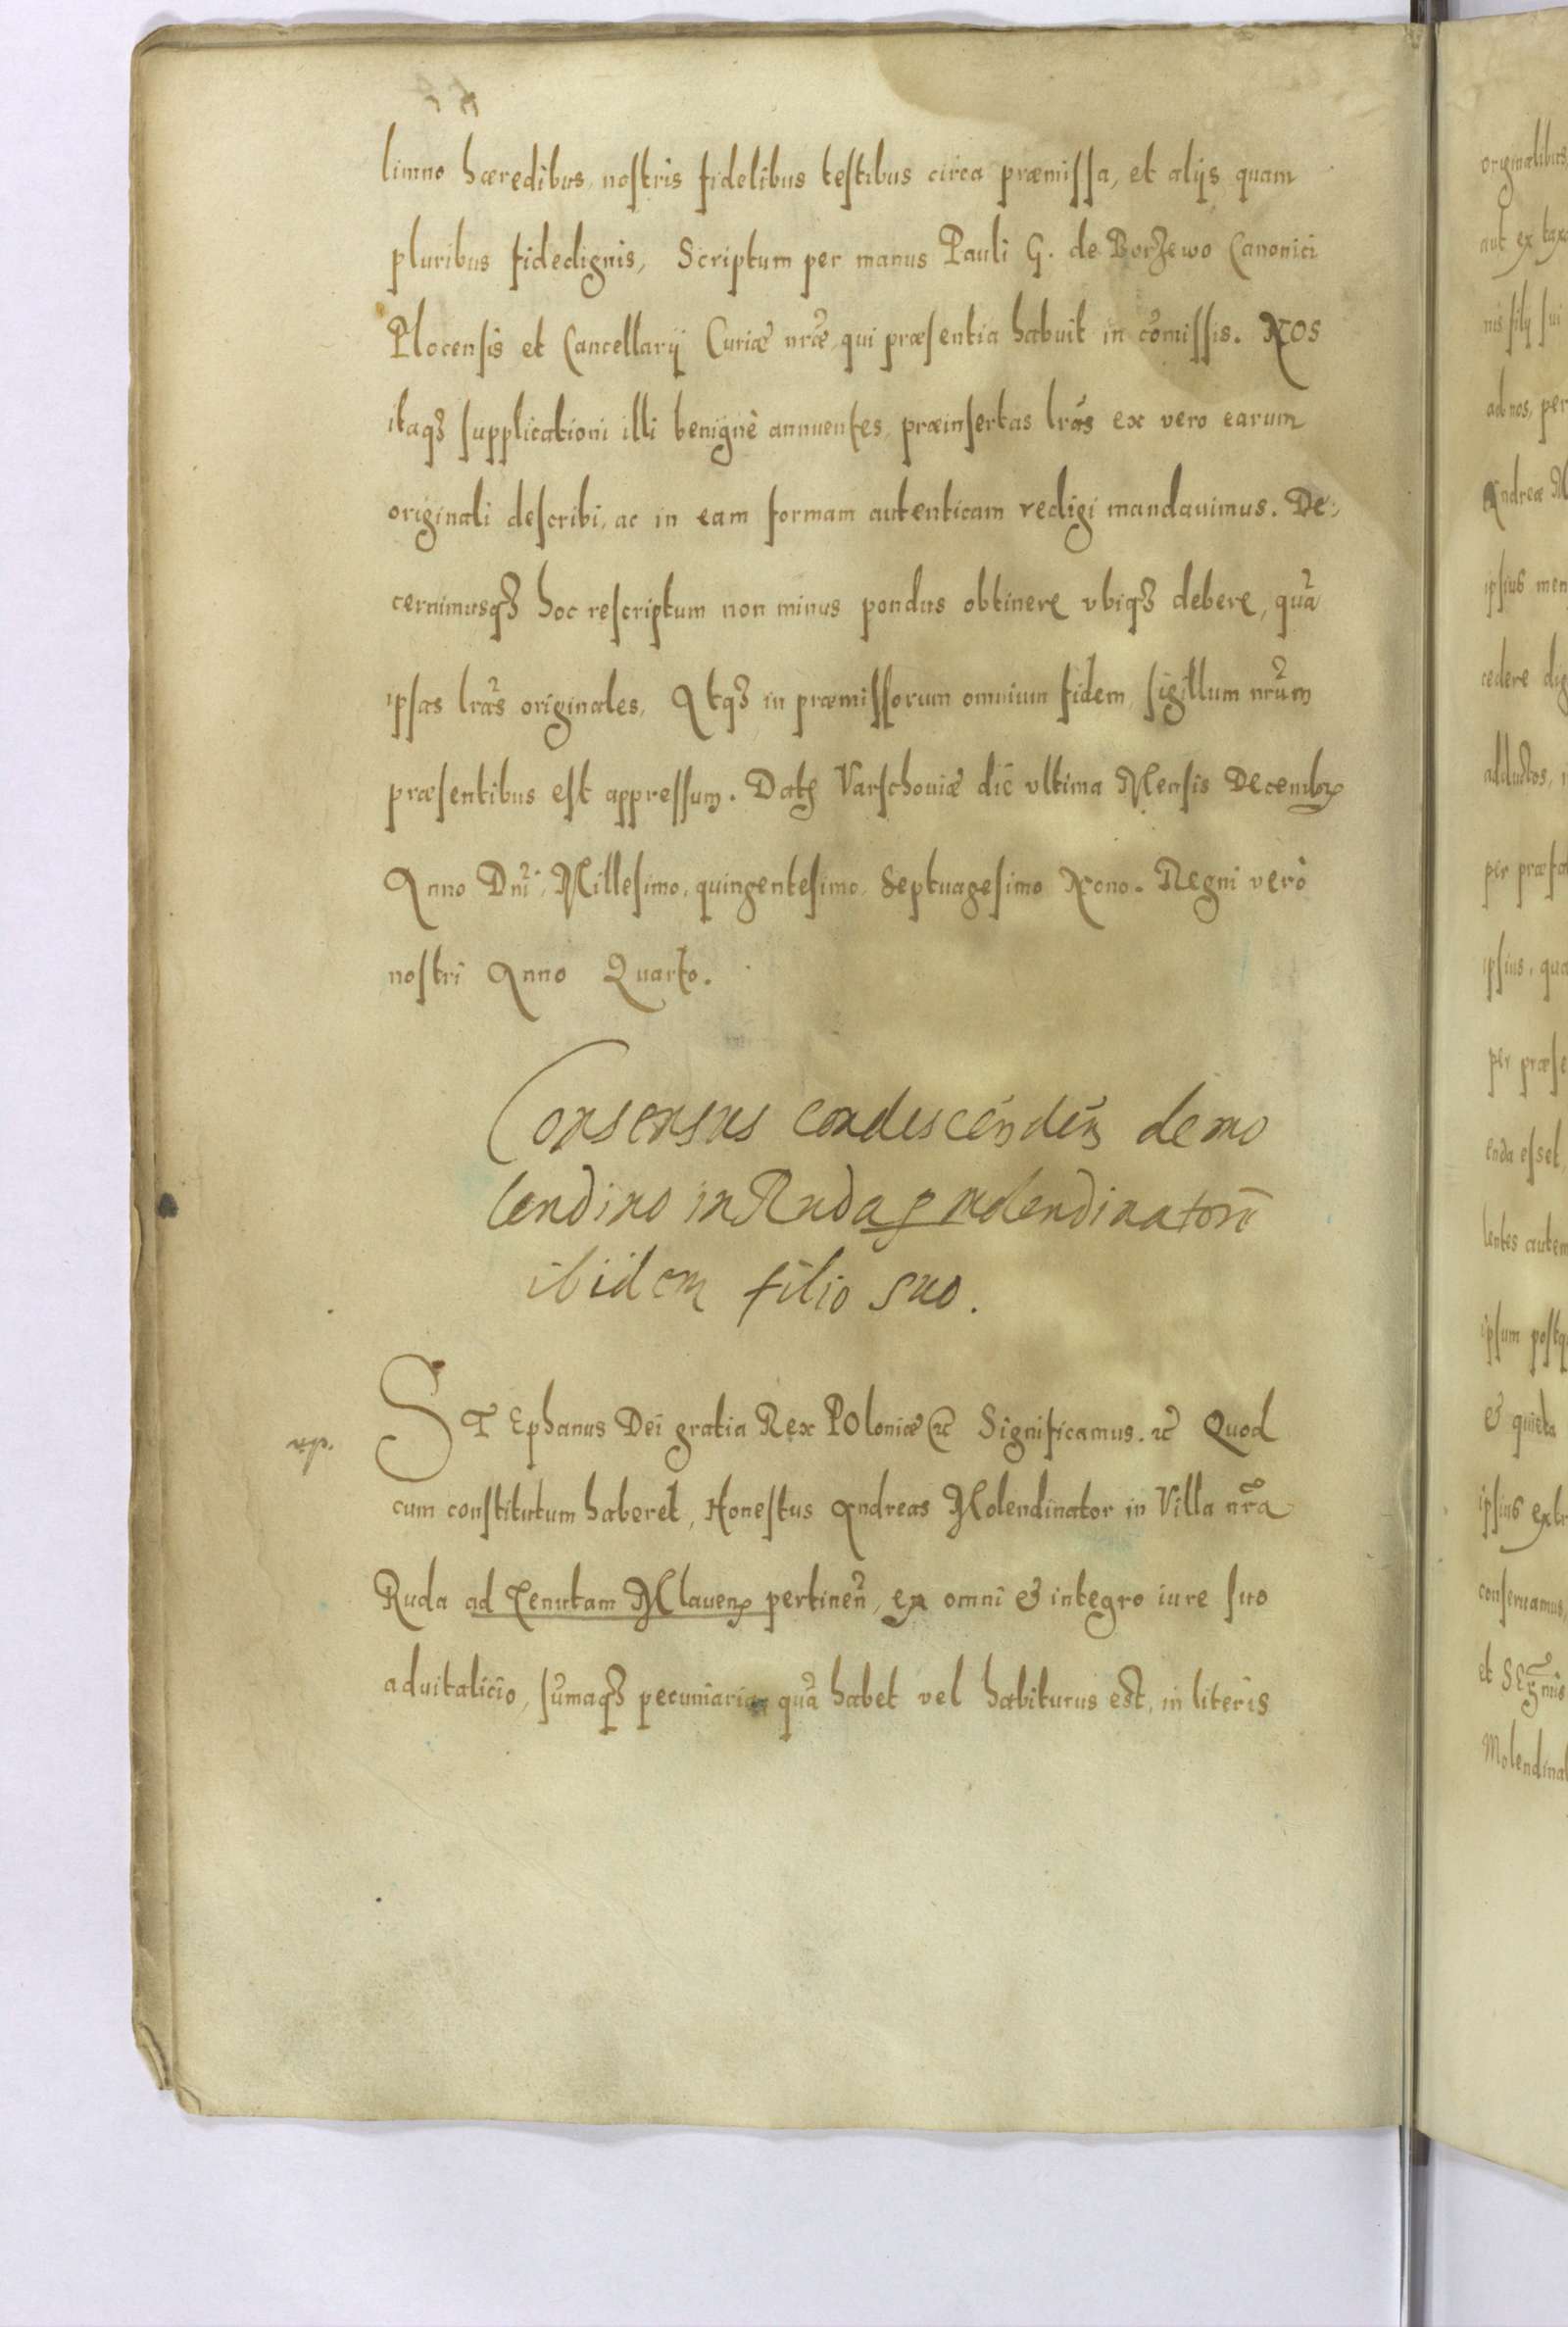 limno hæredibus, nostris fidelibus testibus circa præmissa, et alijs quam
pluribus fidedignis, Scriptum per manus Pauli G. de Borzewo Canonici
Plocensis et Cancellarij Curiæ nr̃æ, qui præsentia habuit in cõmissis. NOS
itaqꝫ supplicationi illi benignè annuentes, præinsertas lrãs ex vero earum
originali describi, ac in eam formam autenticam redigi mandauimus. De⸗
cernimusqꝫ hoc rescriptum non minus pondus obtinere vbiqꝫ debere, quã
ipsas lrãs originales, Atqꝫ in præmissorum omnium fidem, sigillum nr̃um
præsentibus est appressum. Datꝭ Varschouiæ diẽ vltima Mensis Decembꝝ
Anno Dnĩ. Millesimo, quingentesimo, Septuagesimo Nono. Regni verò
nostri Anno Quarto.
Consensus condescẽndẽn de mo
lendino in Ruda ꝑ molendinatorẽ
ibidem filio suo.
STEphanus Dei gratia Rex Poloniæ ꝛc̃ Significamus. ꝛc̃ Quod
cum constitutum haberet, Honestus Andreas Molendinator in Villa nr̃a
Ruda ad Tenutam Mlauenꝭ pertineñ, ex omni & integro iure suo
aduitalicio, sũmaqꝫ pecuniaria quã habet vel habiturus est, in literis
originalibus
aut ex
nis filij sui
ad nos, per
Andreæ M
ipsius men
cedere dig
adductos, i
per præfa
ipsius, qua
per præse
enda esset
lentes autem
ipsum postq
& quieta
ipsius extr
conseruamus,
et
Molendinat